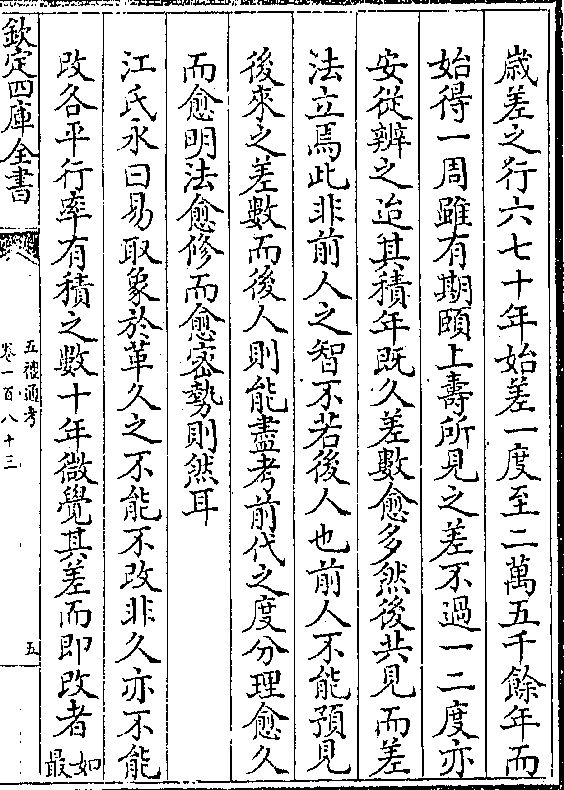 歳差之行六七十年始差一度至二萬五千餘年而
始得一周雖有期頤上壽所見之差不過一二度亦
安從辨之迨其積年既久差數愈多然後共見而差
法立焉此非前人之智不若後人也前人不能預見
後來之差數而後人則能盡考前代之度分理愈久
而愈明法愈修而愈密勢則然耳
江氏永曰易取象於革久之不能不改非久亦不能
改各平行率有積之數十年微覺其差而即改者如
最
欽定四庫全書
五禮通考
卷一百八十三
五